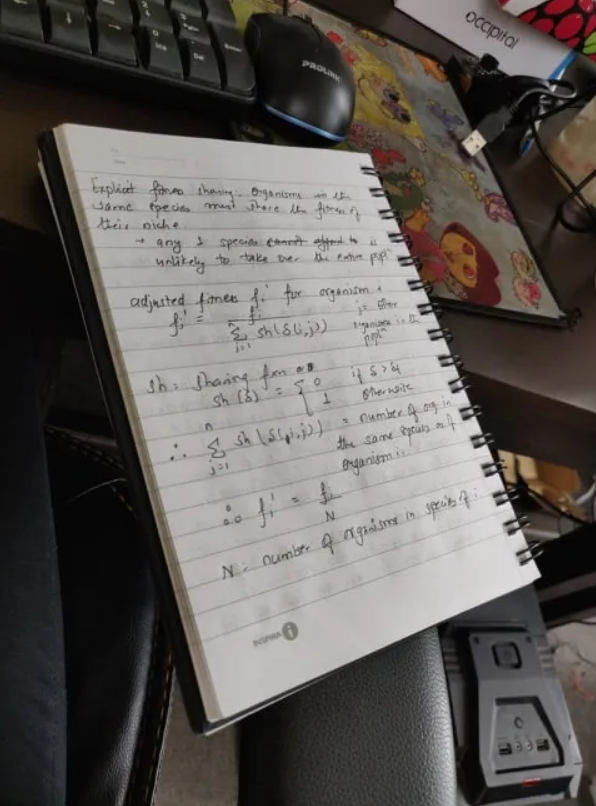 occipital
PROLINK
Explicit fitness sharing: Organisms in the
same species must share the fitness of
their niche.
→ any 1 species cannot afford to is
unlikely to take over the entire popln
adjusted fitness fi' for organism i
fi' = fi / Σ(j=1 to n) sh(δ(i,j))
j = other
organisms in the
popln
sh = sharing fxn
sh(δ) = { 0 if δ > δt
1 otherwise
∴ Σ(j=1 to n) sh(δ(i,j)) = number of org in
the same species as
organism i.
∴ fi' = fi / N
N: number of organisms in species of i
INSPIRA